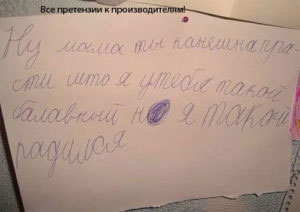 Все претензии к производителям!
Ну мама ты канешна пра-
сти што я утебя такой
балавный но я такой
радился